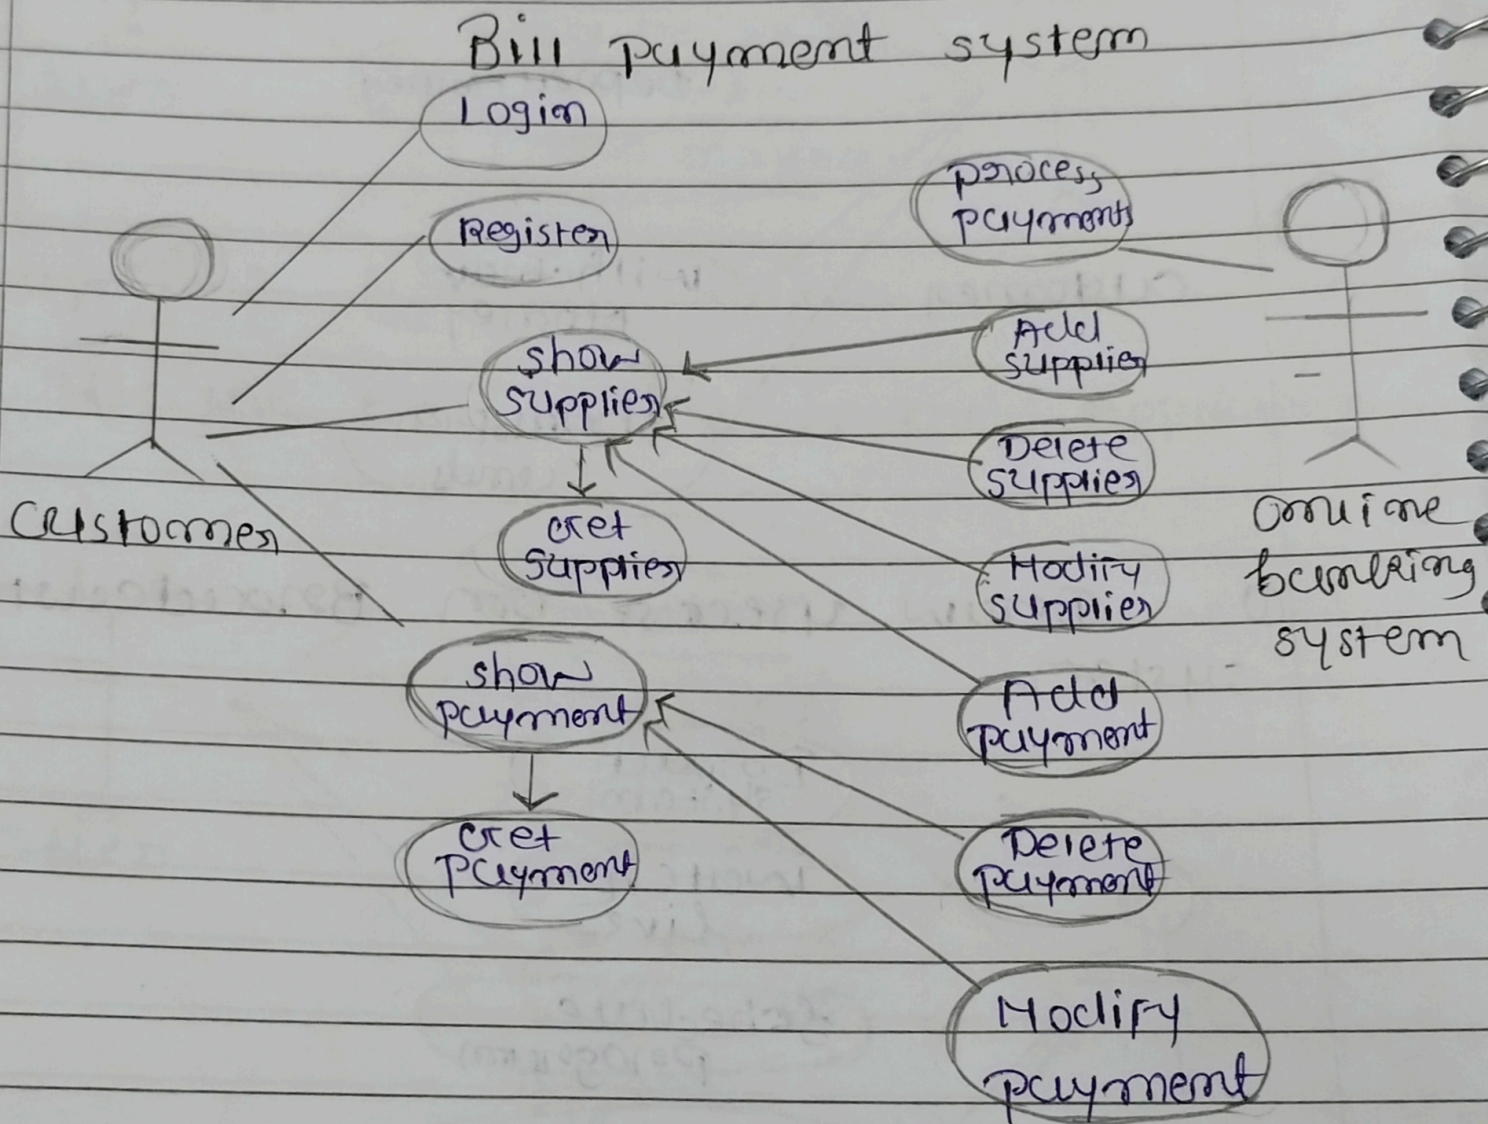 Bill payment system
Login
Register
process
payment
show
supplier
Add
supplier
Delete
supplier
Get
supplier
Modify
supplier
customer
online
banking
system
show
payment
Add
payment
Get
payment
Delete
payment
Modify
payment